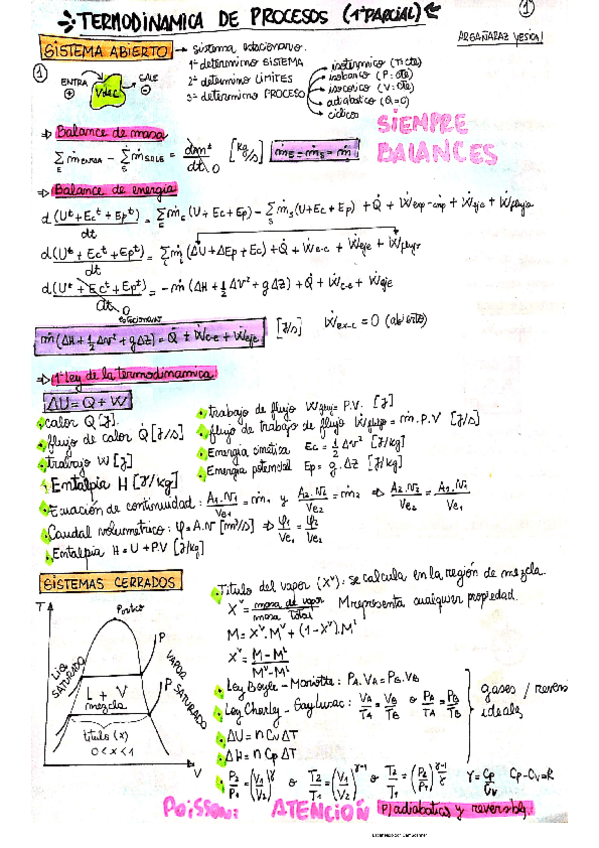 TERMODINAMICA DE PROCESOS (1°PARCIAL)
①
ARGAÑARAZ yesica
SISTEMA ABIERTO → sistema estacionario.
1° determino SISTEMA
2° determino LIMITES
3° determino PROCESO
isotérmico (T: cte)
isobarico (P: cte)
isocorico (V: cte)
adiabático (Q=0)
cíclico
①
ENTRA
V de C
SALE
⊕
⊖
SIEMPRE
BALANCES
⇒ Balance de masa
Σ ṁ ENTRA - Σ ṁ SALE = dmᵗ/dt 0 [kg/s] ṁE = ṁS = ṁ
E
S
⇒ Balance de energia
d(Uᵗ+Ecᵗ+Epᵗ)/dt = Σ ṁe (U+Ec+Ep) - Σ ṁs (U+Ec+Ep) + Q̇ + Ẇexp-cmp + Ẇeje + Ẇflujo
d(Uᵗ+Ecᵗ+Epᵗ)/dt = Σ ṁ (ΔU+ΔEp+Ec) + Q̇ + Ẇe-c + Ẇeje + Ẇflujo
d(Uᵗ+Ecᵗ+Epᵗ)/dt 0 = -ṁ (ΔH+½Δv²+gΔZ) + Q̇ + Ẇc-e + Ẇeje
estacionario
ṁ(ΔH+½Δv²+gΔZ) = Q̇ ± Ẇc-e + Ẇeje [J/s] Ẇex-c = 0 (abierto)
⇒ 1° Ley de la termodinamica
ΔU = Q + W
calor Q [J].
flujo de calor Q̇ [J/s]
trabajo W [J]
Entalpia H [J/kg]
trabajo de flujo Wflujo P.V. [J]
flujo de trabajo de flujo Ẇflujo = ṁ.P.V [J/s]
Energia cinética Ec = ½ Δv² [J/kg]
Energia potencial Ep = g.ΔZ [J/kg]
Ecuación de continuidad: A₁.v₁/Ve₁ = ṁ₁ y A₂.v₂/Ve₂ = ṁ₂ ⇒ A₂.v₂/Ve₂ = A₁.v₁/Ve₁
Caudal volumetrico: φ = A.v [m³/s] ⇒ φ₁/Ve₁ = φ₂/Ve₂
Entalpia H = U + P.V [J/kg]
SISTEMAS CERRADOS
T
Pcrítico
LIQ. SATURADO
P
VAPOR SATURADO
P
L + V
mezcla
titulo (x)
0 < x < 1
V
Titulo del vapor (Xᵛ): se calcula en la región de mezcla.
Xᵛ = masa de vapor/masa total M representa cualquier propiedad.
M = Xᵛ.Mᵛ + (1-Xᵛ).Mᴸ
Xᵛ = M-Mᴸ/Mᵛ-Mᴸ
Ley Boyle - Mariotte: PA.VA = PB.VB
Ley Charly - Gay Lussac: VA/TA = VB/TB o PA/TA = PB/TB
gases / revers
ideales
ΔU = n Cv ΔT
ΔH = n Cp ΔT
P₂/P₁ = (V₁/V₂)^γ o T₂/T₁ = (V₁/V₂)^γ-1 o T₂/T₁ = (P₂/P₁)^γ-1/γ γ = Cp/Cv Cp-Cv=R
Poisson: ATENCIÓN P/ adiabaticos y reversibles.